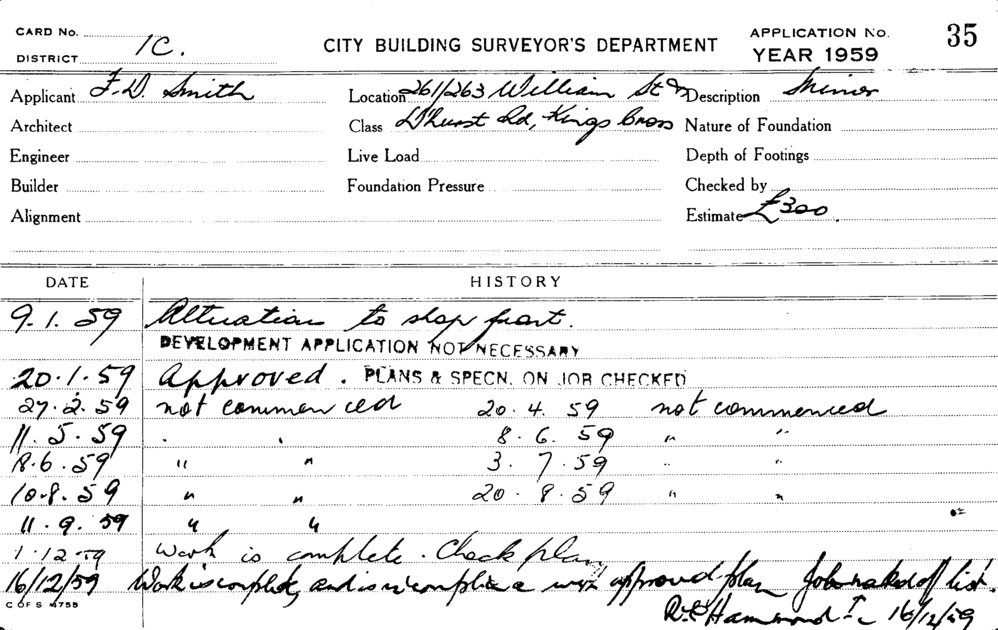 CARD No.
DISTRICT 1C.
CITY BUILDING SURVEYOR'S DEPARTMENT
APPLICATION No. 35
YEAR 1959
Applicant F.D. Smith Location 261/263 William St & Description Minor
Architect Class D'hurst Rd, Kings Cross Nature of Foundation
Engineer Live Load Depth of Footings
Builder Foundation Pressure Checked by
Alignment Estimate £300.
DATE HISTORY
9.1.59 Alterations to shop front.
DEVELOPMENT APPLICATION NOT NECESSARY
20.1.59 Approved. PLANS & SPECN. ON JOB CHECKED
27.2.59 not commenced 20.4.59 not commenced
11.5.59 " " 8.6.59 " "
18.6.59 " " 3.7.59 " "
10.8.59 " " 20.8.59 " "
11.9.59 " "
1.12.59 Work is complete. Check plan
16/12/59 Work is complete, and is in compliance with approved plan Job marked off list.
C OF S 4755
Hammond 16/12/59